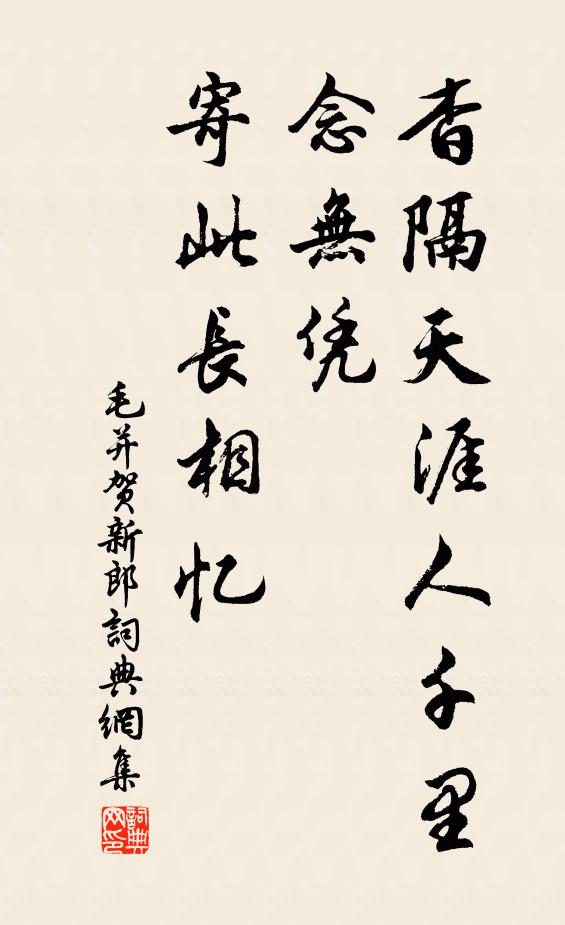 杳隔天涯人千里
念無凭
寄此長相忆
毛并贺新郎詞典網集
詞典网印